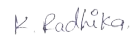 K. Radhika.